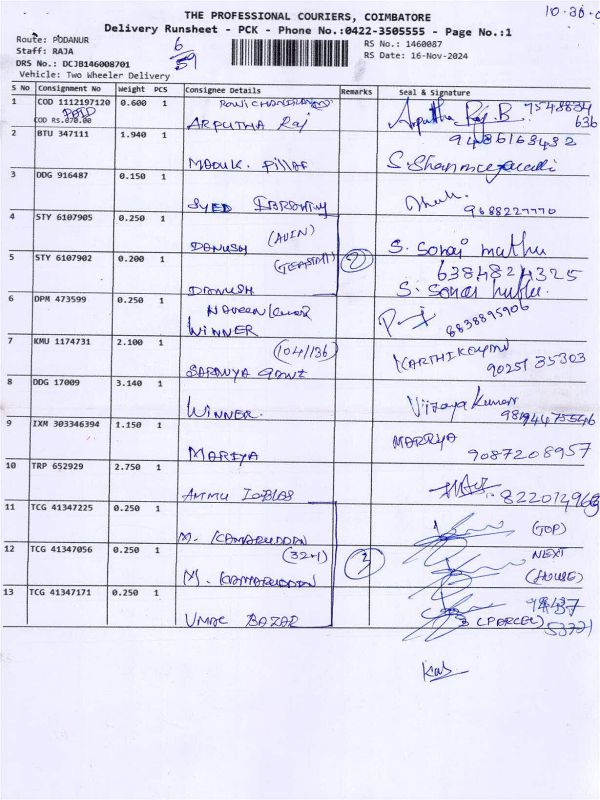 THE PROFESSIONAL COURIERS, COIMBATORE
Delivery Runsheet - PCK - Phone No.:0422-3505555 - Page No.:1
10-30
Route: PODANUR
Staff: RAJA
DRS No: DCJB146008701
Vehicle: Two Wheeler Delivery
6/59
RS No.: 1460087
RS Date: 16-Nov-2024
S No Consignment No Weight PCS Consignee Details Remarks Seal & Signature
1 COD 1112197120 0.600 1 ARPUTHA Raj Arputha Raj.B 7548834
COD RS.:870.00 636
2 BTU 347111 1.940 1 9486163432
3 DDG 916487 0.150 1 SYED 9688227770
4 STY 6107905 0.250 1 DANUSH (AVIN) S. Sonai muthu
5 STY 6107902 0.200 1 DANUSH 2 6384824325
6 DPM 473599 0.250 1 Naveen Kumar
WINNER 8838895906
7 KMU 1174731 2.100 1 (104/136) KARTHIKEYAN
SARANYA 90251 35303
8 DDG 17009 3.140 1 WINNER. Vijaya Kumar
9 IXM 303346394 1.150 1 MARIYA MARIYA
9087208957
10 TRP 652929 2.750 1 AMMU
11 TCG 41347225 0.250 1 M. KAMARUDDEN (TOP)
12 TCG 41347056 0.250 1 (32+1) 3 NEXT
M. KAMARUDDEN (HOUSE)
13 TCG 41347171 0.250 1 UMAR BAZAR (PARCEL)